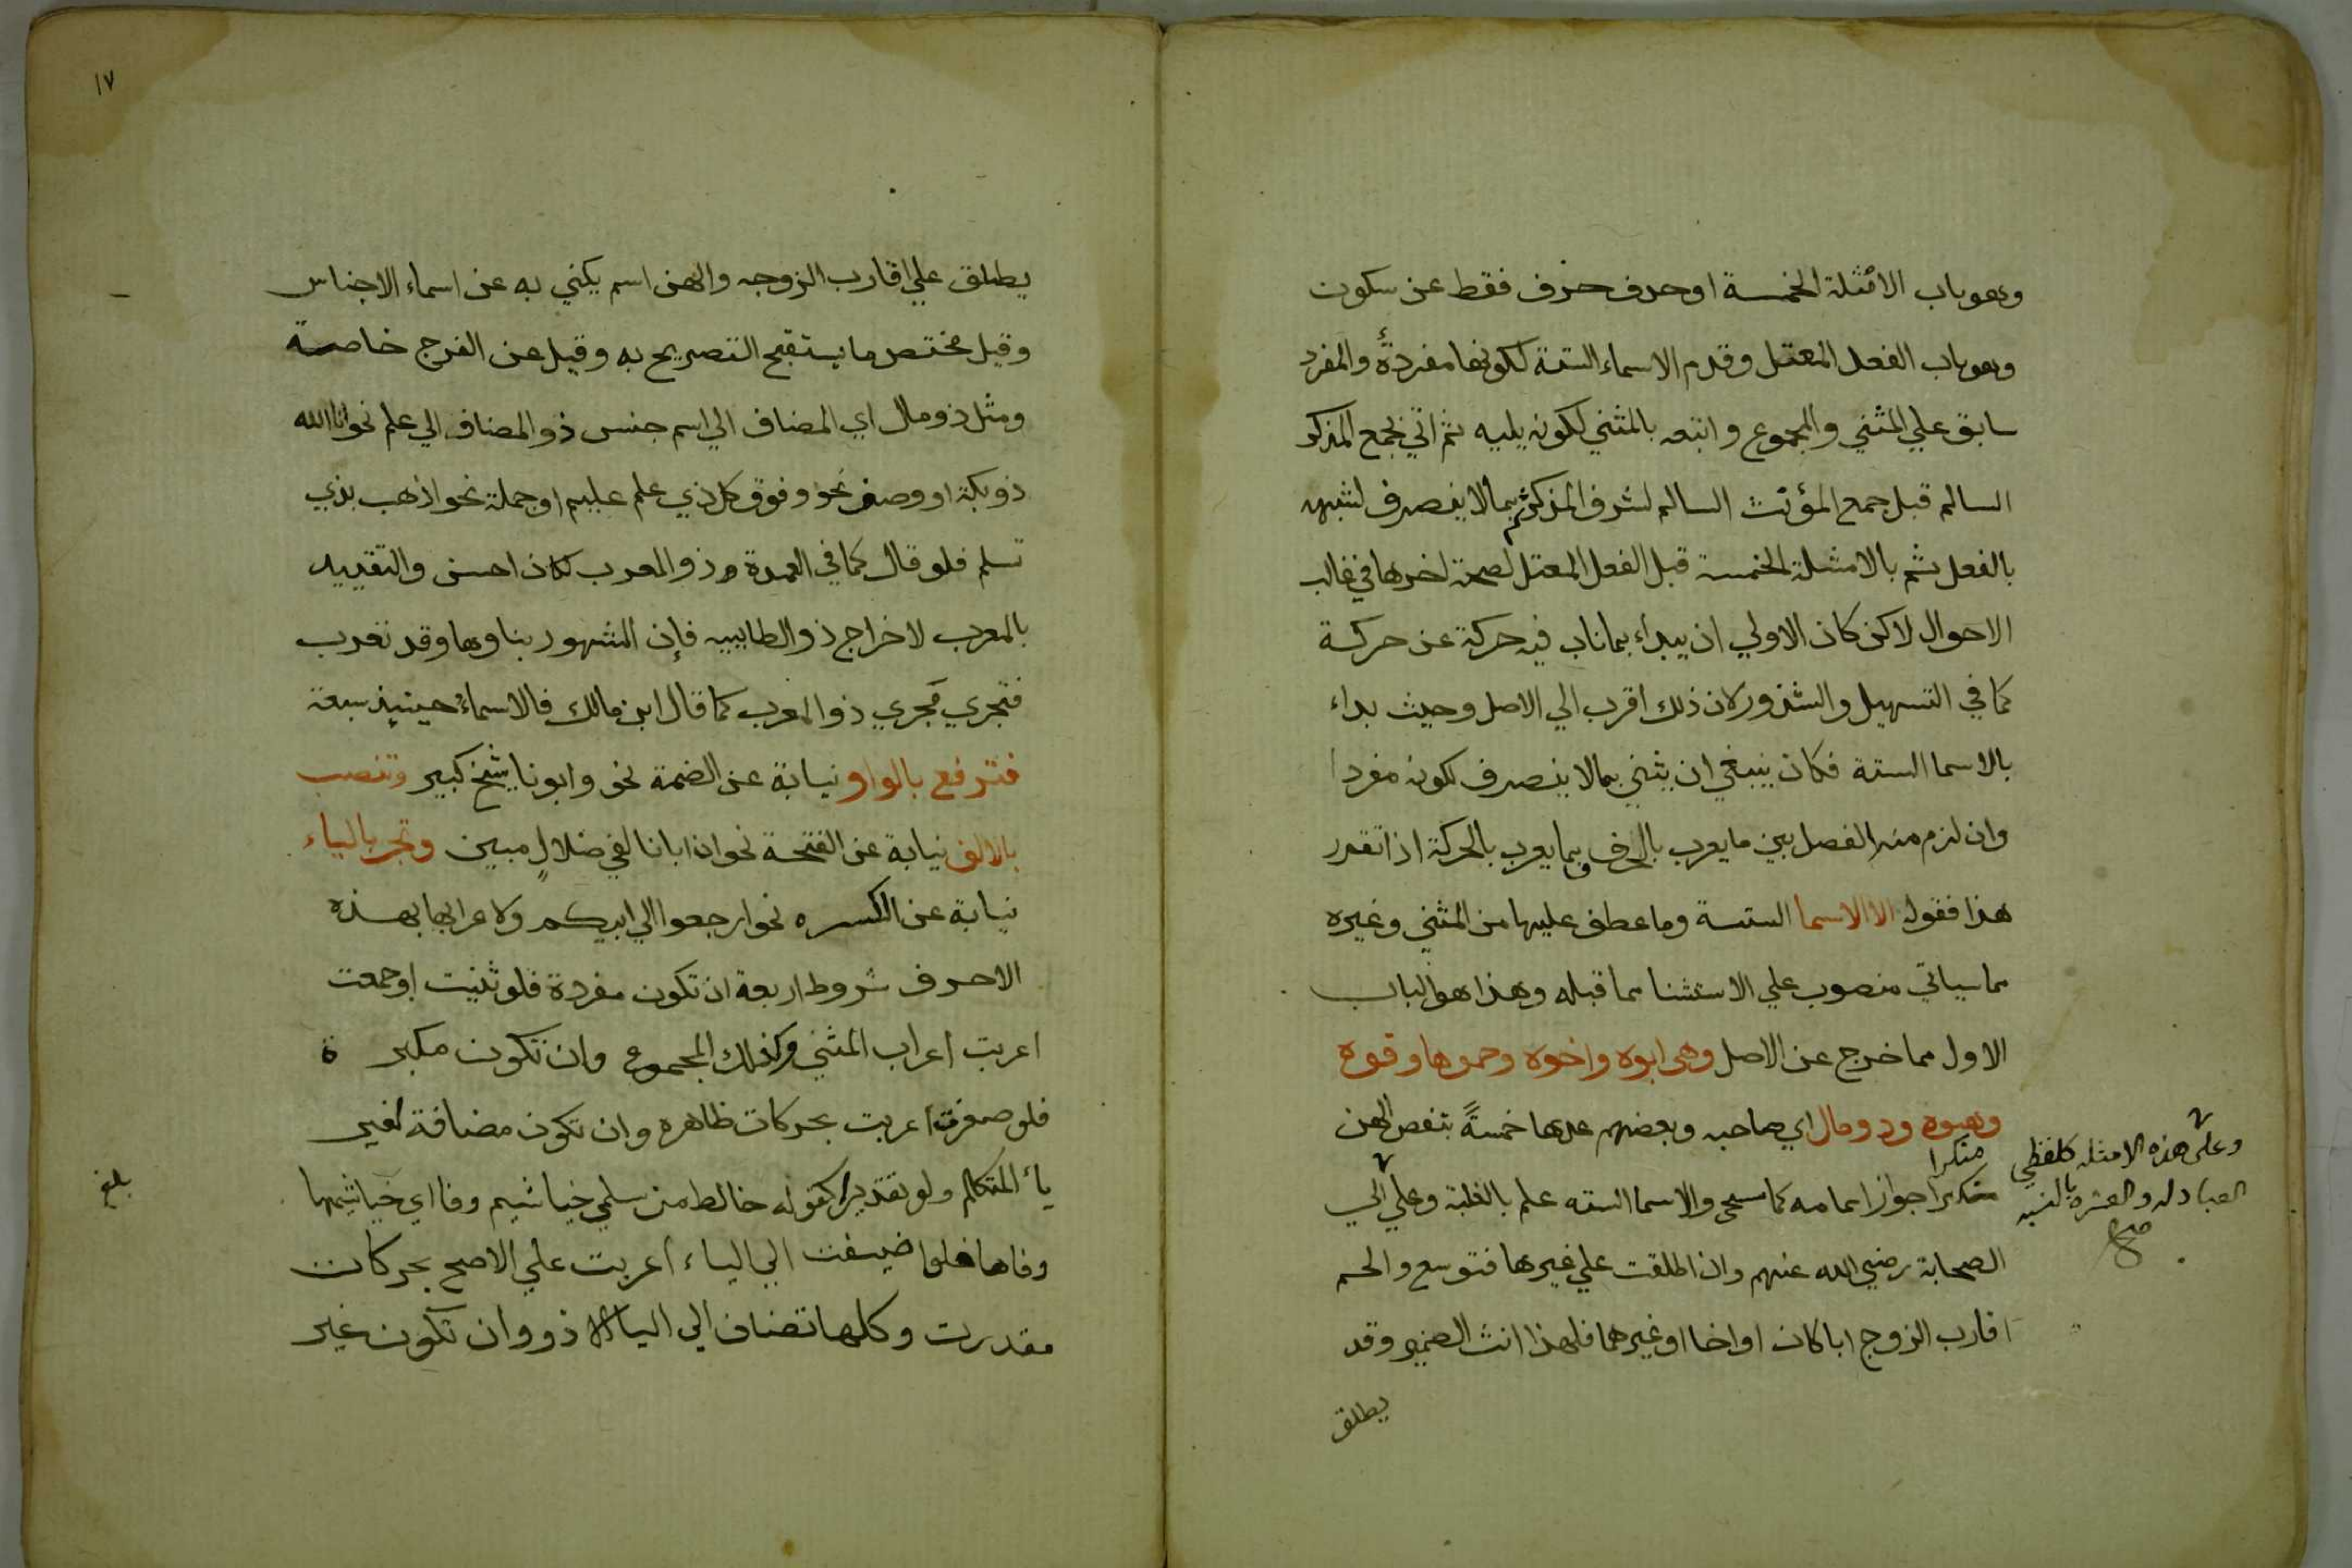 وهو باب الامثلة الخمسة او حرف حذف فقط عن سكون
وهو باب الفعل المعتل وقدم الاسماء الستة لكونها مفردة والمفرد
سابق علي المثني والمجموع واتبعه بالمثني لكونه يليه ثم اتي بجمع المذكر
السالم قبل جمع المؤنث السالم لشرف المذكر ثم بما لا ينصرف لشبهه
بالفعل ثم بالامثلة الخمسة قبل الفعل المعتل لصحة اخرها في غالب
الاحوال لاكن كان الاولي ان يبداء بما ناب فيه حركة عن حركة
كما في التسهيل والشذور لان ذلك اقرب الي الاصل وحيث بداء
بالاسما الستة فكان ينبغي ان يثني بمالا ينصرف لكونه مفردا
وان لزم منه الفصل بين ما يعرب بالحرف وبما يعرب بالحركة اذا تقدر
هذا فقوله الا الاسما الستسة وما عطف عليها من المثني وغيره
مما سياتي منصوب علي الاستثنا مما قبله وهذا هو الباب
الاول مما خرج عن الاصل وهى ابوه واخوه وحموها وفوه
وهنوه وذو مال اي صاحبه وبعضهم عدها خمسةً بنقص الهن
منكرا
منكرا جواز اتمامه كما سيجي والاسما السته علم بالغلبة وعلي الي
وعلي هذه الامثله كلفظي
العبادله والعشره بالنسبه
صح
الصحابة رضي الله عنهم وان اطلقت علي غيرها فتوسع والحم
اقارب الزوج ابا كان او اخا او غيرهما فلهذا انث الضمير وقد
يطلق
١٧
يطلق علي اقارب الزوجه والهن اسم يكني به عن اسماء الاجناس
وقيل مختص ما يستقبح التصريح به وقيل عن الفرج خاصة
ومثل ذو مال اي المضاف الي اسم جنس ذو المضاف الي علم نحو انا الله
ذو بكة او وصف نحو وفوق كل ذي علم عليم او جملة نحو اذهب بذي
تسلم فلو قال كما في العمدة وذو المعرب لكان احسن والتقييد
بالمعرب لاخراج ذو الطاييه فإن المشهور بناوها وقد تعرب
فتجري مجري ذو المعرب كما قال ابن مالك فالاسماء حينيذ سبعة
فترفع بالواو نيابة عن الضمة نحو وابونا شيخ كبير وتنصب
بالالف نيابة عن الفتحة نحو ان ابانا لفي ضلالٍ مبين وتجر بالياء
نيابة عن الكسره نحو ارجعوا الي ابيكم ولاعرابها بهذه
الاحرف شروط اربعة ان تكون مفردة فلو ثنيت او جمعت
اعربت اعراب المثني وكذلك المجموع وان تكون مكبر ة
فلو صغرت اعربت بحركات ظاهره وان تكون مضافة لغير
ياء المتكلم ولو تقديرا كقوله خالط من سلمي خياشيم وفا اي خياشيمها
بلغ
وفاها فلو اضيفت الي الياء اعربت علي الاصح بحركات
مقدرت وكلها تضاف الي اليا الا ذو وان تكون غير